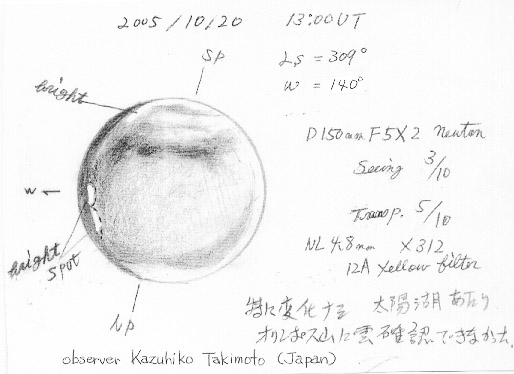 2005/10/20 13:00UT
Sp
Ls = 309°
ω = 140°
bright
D150mm F5X2 Newton
Seeing 3/10
W ←
Transp. 5/10
NL 4.8mm X312
bright spot
12A Yellow filter
Np
特に変化ナシ 太陽湖あたり
オリンポス山に雲確認できなかった。
observer Kazuhiko Takimoto (Japan)